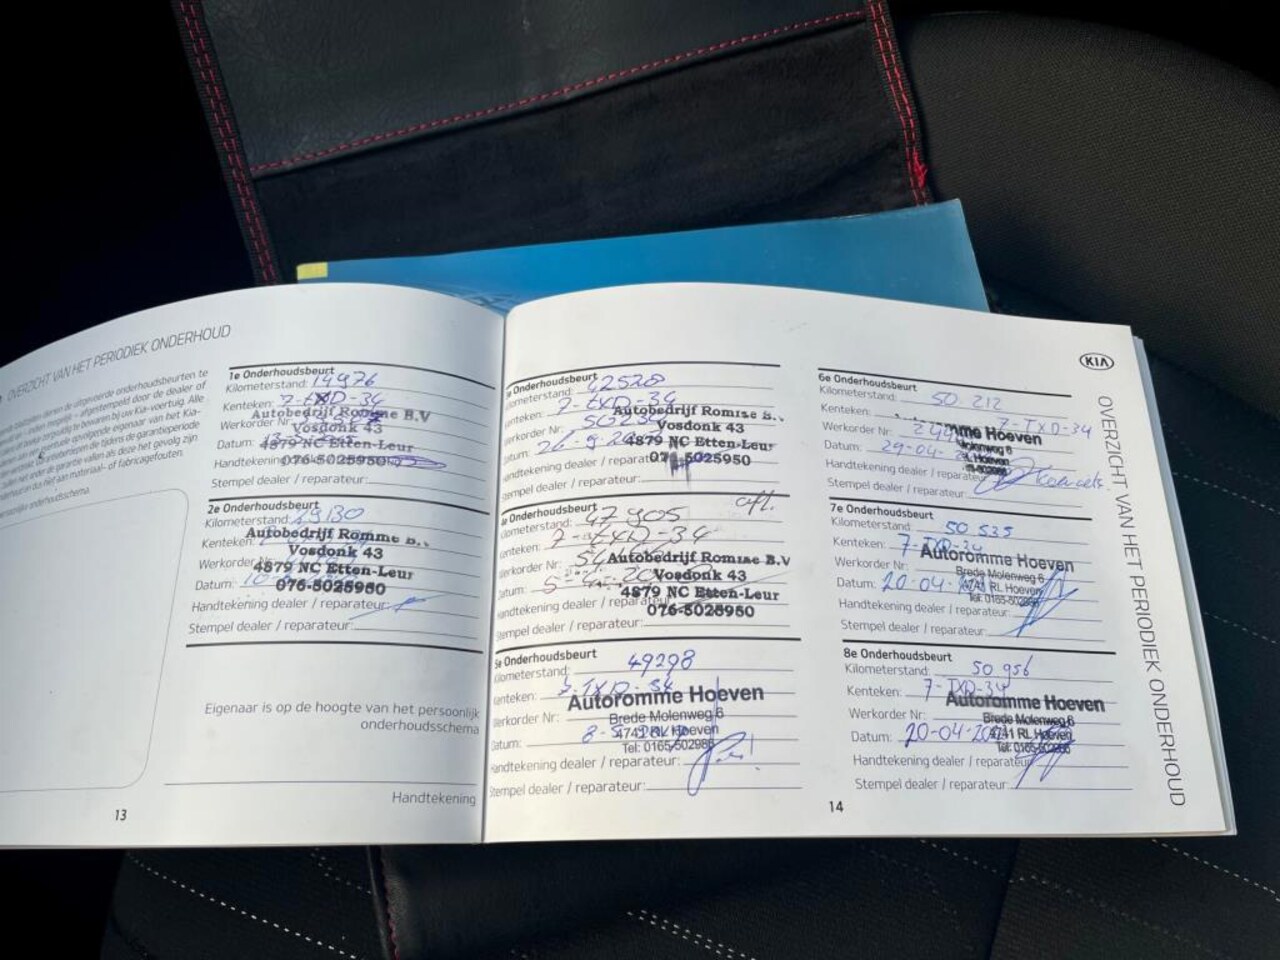 OVERZICHT VAN HET PERIODIEK ONDERHOUD
uitgevoerde onderhoudsbeurten te
afgestempeld door de dealer of
bewaren bij uw Kia-voertuig. Alle
eigenaar van het Kia-
tijdens de garantieperiode
als deze het gevolg zijn
materiaal- of fabricagefouten.
onderhoudsschema.
1e Onderhoudsbeurt
Kilometerstand: 14976
Kenteken: 7-TXD-34
Autobedrijf Romme B.V
Werkorder Nr:
Vosdonk 43
Datum:
4879 NC Etten-Leur
Handtekening
076-5025950
Stempel dealer / reparateur:
2e Onderhoudsbeurt
Kilometerstand
Autobedrijf Romme B.
Kenteken:
Vosdonk 43
Werkorder
4879 NC Etten-Leur
Datum:
076-5025950
Handtekening dealer / reparateur
Stempel dealer / reparateur:
Eigenaar is op de hoogte van het persoonlijk
onderhoudsschema
Handtekening
13
Onderhoudsbeurt
Kilometerstand: 42520
Kenteken: 7-TXD-34
Autobedrijf Romme B.
Werkorder Nr:
Vosdonk 43
Datum:
4879 NC Etten-Leur
Handtekening dealer / reparat
076-5025950
Stempel dealer / reparateur:
Onderhoudsbeurt
Kilometerstand: 47905
Kenteken: 7-TXD-34
Werkorder Nr:
Autobedrijf Romme B.V
Vosdonk 43
Datum:
4879 NC Etten-Leur
Handtekening dealer / reparat
076-5025950
Stempel dealer / reparateur:
5e Onderhoudsbeurt
Kilometerstand: 49298
Kenteken: 7-TXD-34
Autoromme Hoeven
Werkorder Nr:
Brede Molenweg 6
4741 RL Hoeven
Datum:
Tel: 0165-502986
Handtekening dealer / reparateur:
Stempel dealer / reparateur:
14
KIA
6e Onderhoudsbeurt
Kilometerstand: 50 212
Kenteken: 7-TXD-34
Werkorder Nr:
mme Hoeven
Datum: 29-04-
Handtekening dealer / reparateur
Stempel dealer / reparateur:
7e Onderhoudsbeurt
Kilometerstand 50 535
Kenteken: 7-TXD-34
Autoromme Hoeven
Werkorder Nr:
Brede Molenweg 6
4741 RL Hoeven
Datum: 20-04-
Tel: 0165-502986
Handtekening dealer / reparateur:
Stempel dealer / reparateur:
8e Onderhoudsbeurt
Kilometerstand: 50 956
Kenteken: 7-TXD-34
Autoromme Hoeven
Werkorder Nr:
Brede Molenweg 6
4741 RL Hoeven
Datum: 20-04-
Tel: 0165-502986
Handtekening dealer / reparateur:
Stempel dealer / reparateur:
OVERZICHT VAN HET PERIODIEK ONDERHOUD